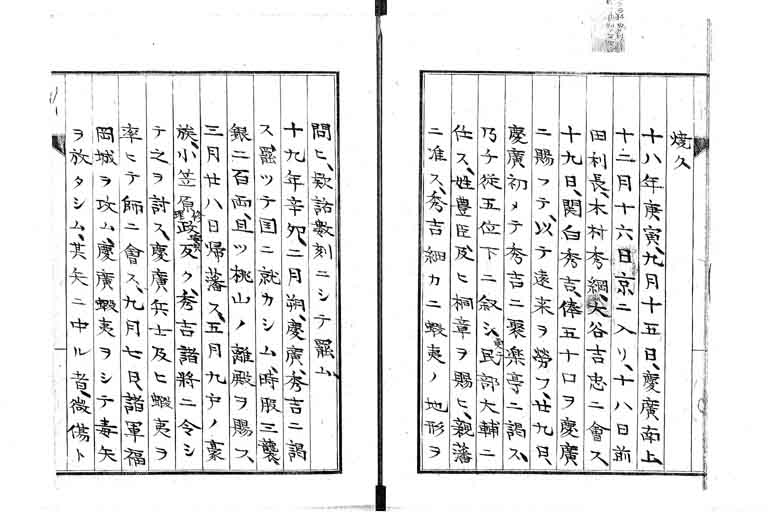 焼久
十八年庚寅、九月十五日、慶廣南上
十二月十六日京ニ入リ、十八日前
田利長、木村秀綱、大谷吉忠ニ會ス、
十九日、関白秀吉、俸五十口ヲ慶廣
ニ賜フテ、以テ遠来ヲ勞フ、廿九日、
慶廣初メテ秀吉ニ聚楽亭ニ謁ス、
乃チ従五位下ニ叙シ、民部大輔ニ
任ス、姓豊臣及ヒ桐章ヲ賜ヒ、親藩
ニ准ス、秀吉細カニ蝦夷ノ地形ヲ
問ヒ、款話数刻ニシテ罷ム、
十九年辛卯、二月朔、慶廣、秀吉ニ謁
ス、罷ツテ国ニ就カシム、時服三襲
銀二百両、且ツ桃山ノ離殿ヲ賜ス、
三月廿八日帰藩ス、五月九戸ノ豪
族、小笠原政及ク、秀吉諸將ニ令シ
テ之ヲ討ス、慶廣兵士及ヒ蝦夷ヲ
率ヒテ師ニ會ス、九月七日、諸軍福
岡城ヲ攻ム、慶廣蝦夷ヲシテ毒矢
ヲ放タシム、其矢ニ中ル者、微傷ト